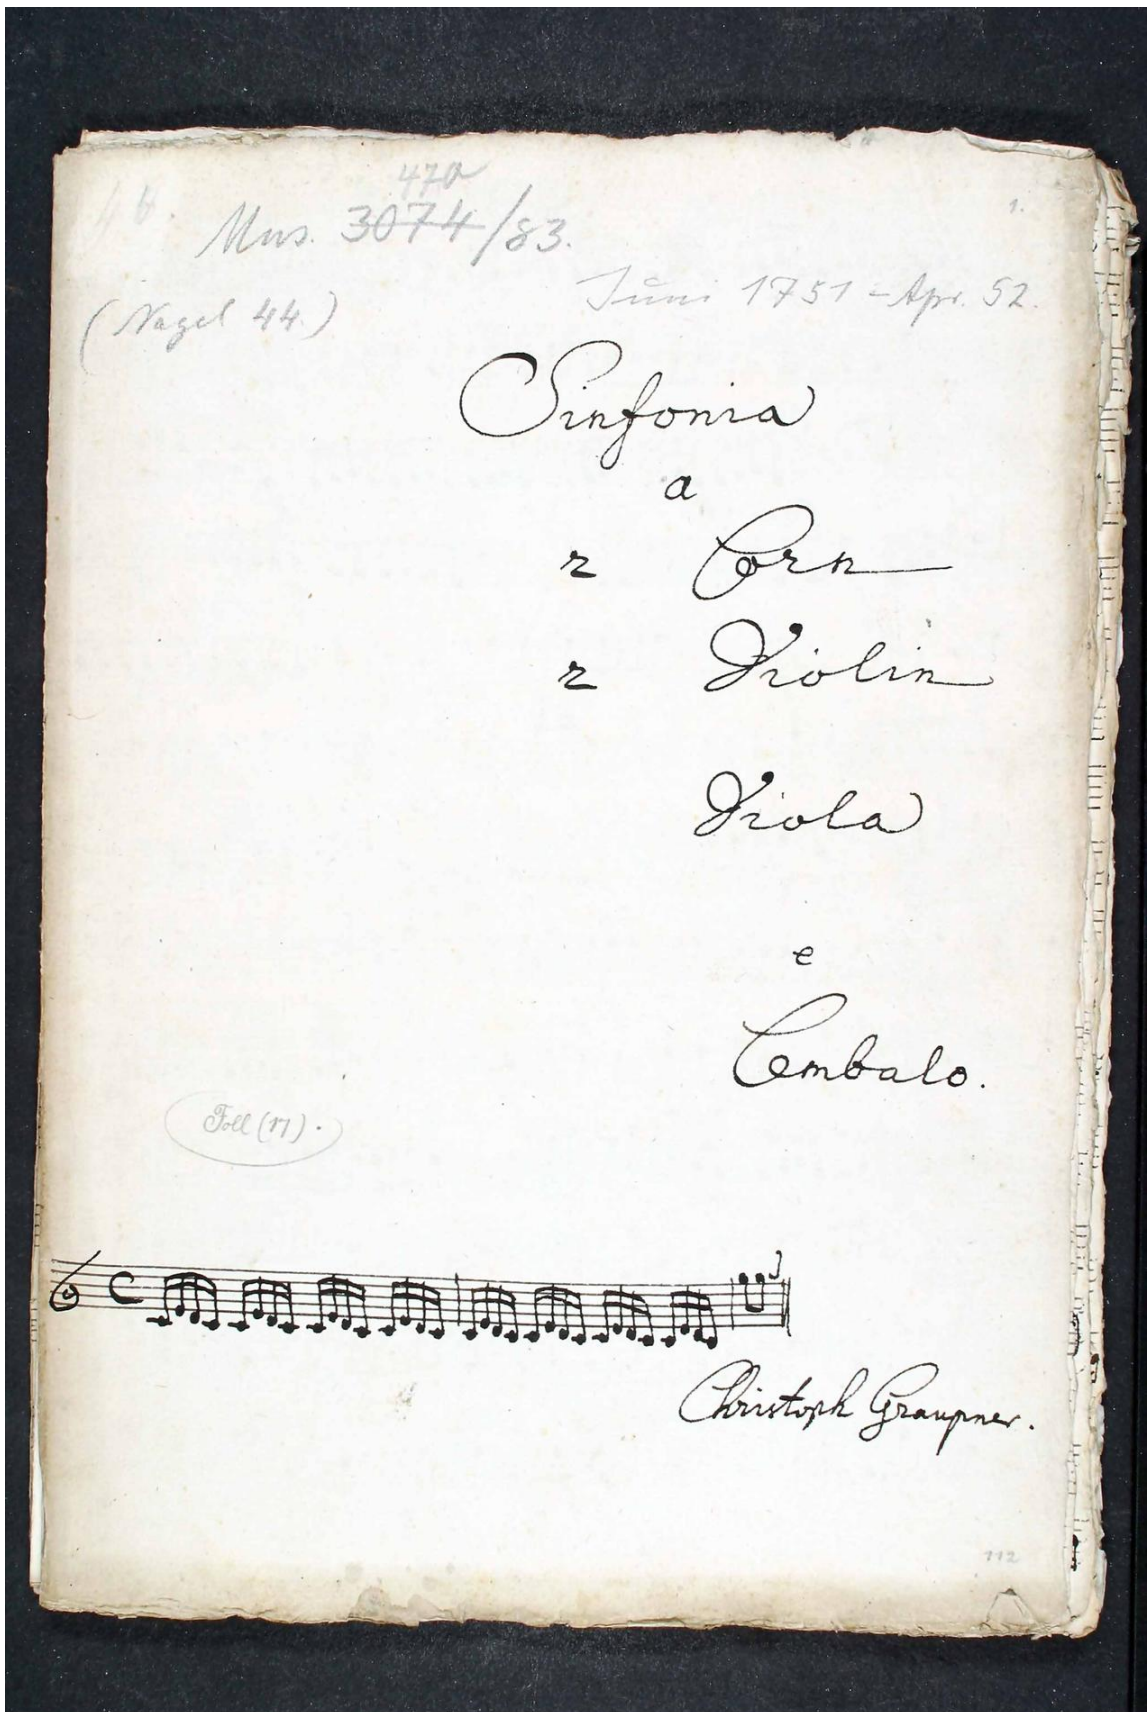 470
1.
Mus. 3074/83.
Juni 1751 - Apr. 52.
(Nagel 44.)
Sinfonia
a
2 Corn
2 Violin
Viola
e
Cembalo.
Foll (17).
Christoph Graupner.
112